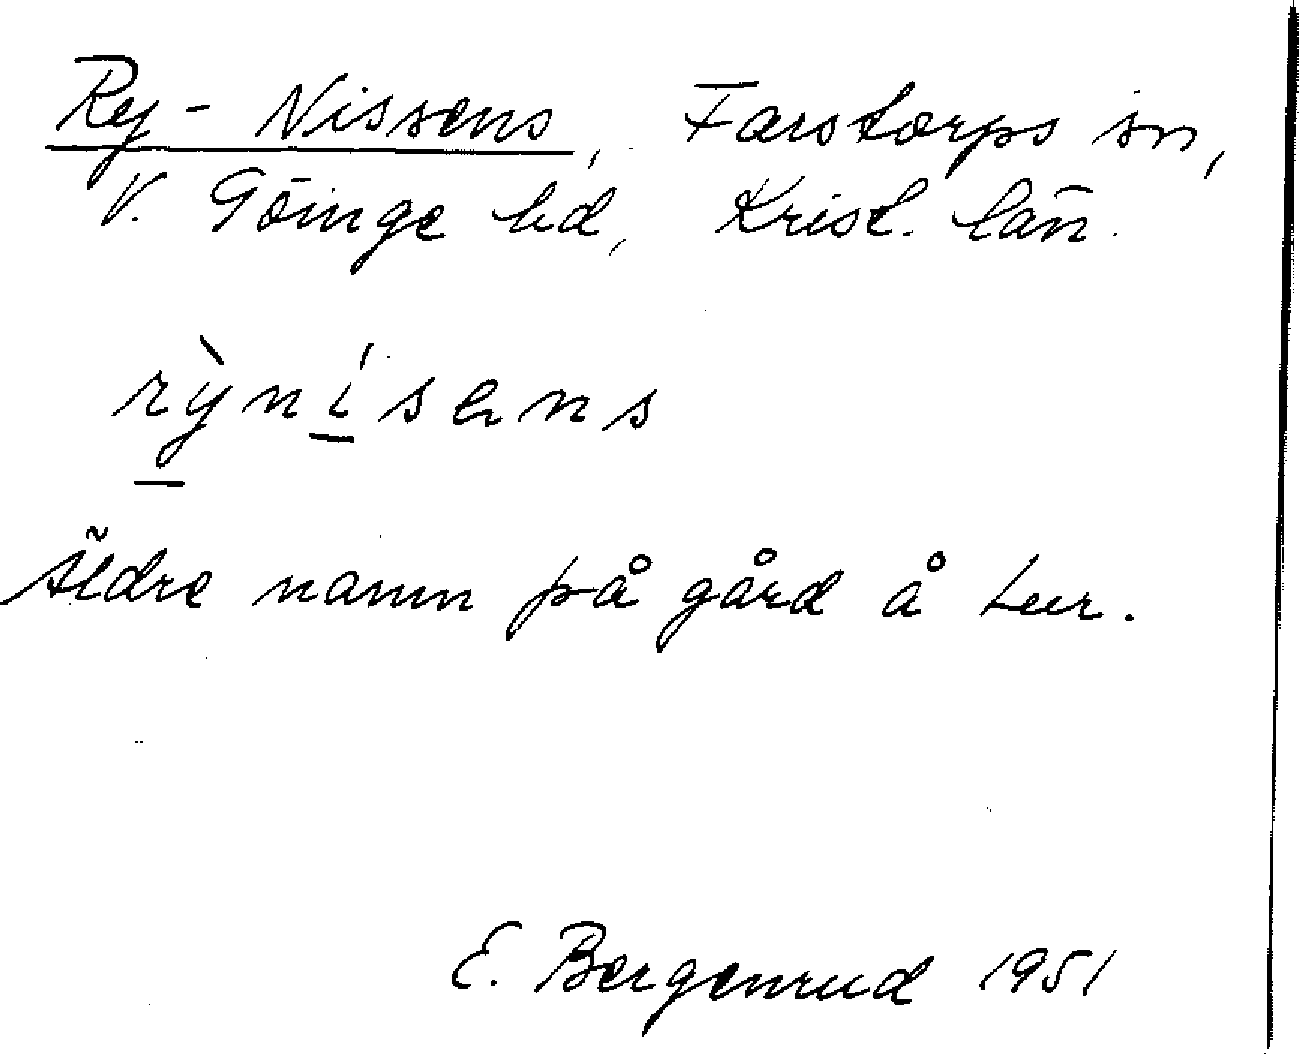 Ry-Nissens, Farstorps sn,
V. Göinge hd, Krist. län.
rỳnísəns
Äldre namn på gård å
E. Bergenrud 1951